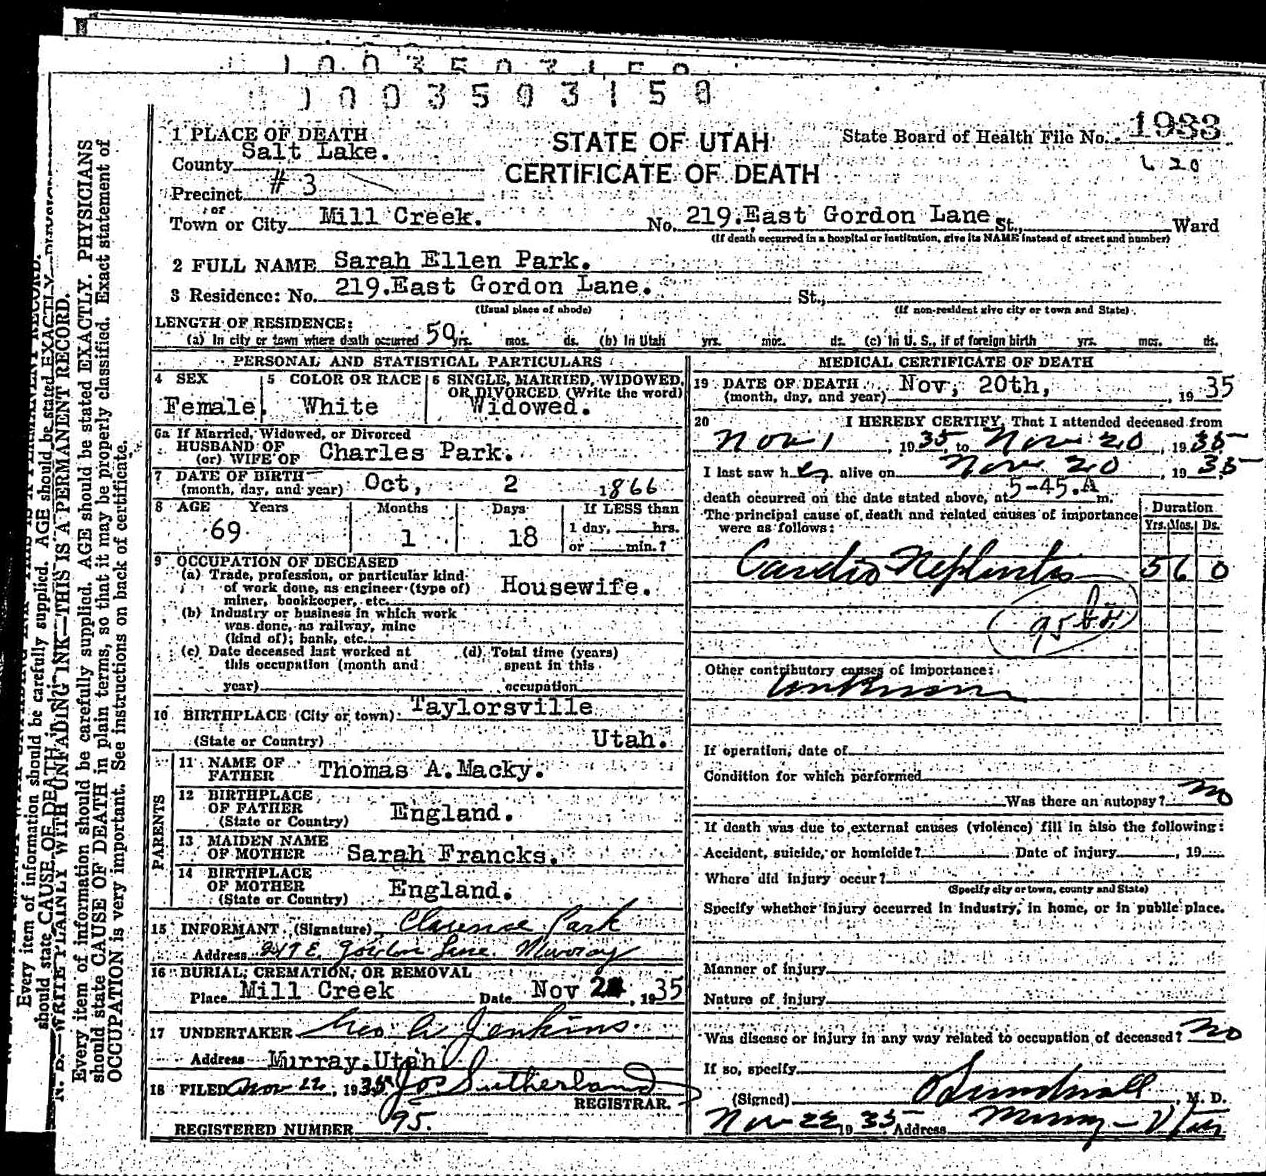 1003503150
STATE OF UTAH
CERTIFICATE OF DEATH
State Board of Health File No. 1933
1 PLACE OF DEATH
County Salt Lake.
Precinct # 3
or
Town or City Mill Creek. No. 219.East Gordon Lane St., Ward
(If death occurred in a hospital or institution, give its NAME instead of street and number)
2 FULL NAME Sarah Ellen Park.
3 Residence: No. 219.East Gordon Lane. St.,
(Usual place of abode) (If non-resident give city or town and State)
LENGTH OF RESIDENCE:
(a) In city or town where death occurred 50 yrs. mos. ds. (b) In Utah yrs. mos. ds. (c) In U. S., if of foreign birth yrs. mos. ds.
PERSONAL AND STATISTICAL PARTICULARS
4 SEX Female.
5 COLOR OR RACE White
6 SINGLE, MARRIED, WIDOWED, OR DIVORCED (Write the word) Widowed.
6a If Married, Widowed, or Divorced
HUSBAND OF
(or) WIFE OF Charles Park.
7 DATE OF BIRTH
(month, day, and year) Oct, 2 1866
8 AGE Years 69 Months 1 Days 18 If LESS than 1 day, hrs. or min.?
9 OCCUPATION OF DECEASED
(a) Trade, profession, or particular kind of work done, as engineer (type of) miner, bookkeeper, etc. Housewife.
(b) Industry or business in which work was done, as railway, mine (kind of); bank, etc.
(c) Date deceased last worked at this occupation (month and year)
(d) Total time (years) spent in this occupation
10 BIRTHPLACE (City or town) Taylorsville
(State or Country) Utah.
PARENTS
11 NAME OF FATHER Thomas A.Macky.
12 BIRTHPLACE OF FATHER (State or Country) England.
13 MAIDEN NAME OF MOTHER Sarah Francks.
14 BIRTHPLACE OF MOTHER (State or Country) England.
15 INFORMANT (Signature) Clarence Park
Address 247 E. Gordon Lane Murray
16 BURIAL, CREMATION, OR REMOVAL
Place Mill Creek Date Nov , 1935
17 UNDERTAKER Geo A Jenkins.
Address Murray.Utah
18 FILED Nov 22, 1935 Jos Sutherland
REGISTRAR.
REGISTERED NUMBER 95.
MEDICAL CERTIFICATE OF DEATH
19 DATE OF DEATH
(month, day, and year) Nov, 20th, , 1935
20 I HEREBY CERTIFY, That I attended deceased from
Nov 1, 1935 to Nov 20, 1935
I last saw her alive on Nov 20, 1935
death occurred on the date stated above, at 5-45.A m.
The principal cause of death and related causes of importance were as follows:
Duration
Yrs. Mos. Ds.
Cardio Nephritis 5 6 0
Other contributory causes of importance:
Unknown
If operation, date of
Condition for which performed
Was there an autopsy? no
If death was due to external causes (violence) fill in also the following:
Accident, suicide, or homicide? Date of injury , 19
Where did injury occur?
(Specify city or town, county and State)
Specify whether injury occurred in industry, in home, or in public place.
Manner of injury
Nature of injury
Was disease or injury in any way related to occupation of deceased? no
If so, specify
(Signed) Sundwall, M. D.
Nov 22 1935 Address Murray - Utah
N. B.—WRITE PLAINLY WITH UNFADING INK—THIS IS A PERMANENT RECORD.
Every item of information should be carefully supplied. AGE should be stated EXACTLY. PHYSICIANS
should state CAUSE OF DEATH in plain terms, so that it may be properly classified. Exact statement of
OCCUPATION is very important. See instructions on back of certificate.